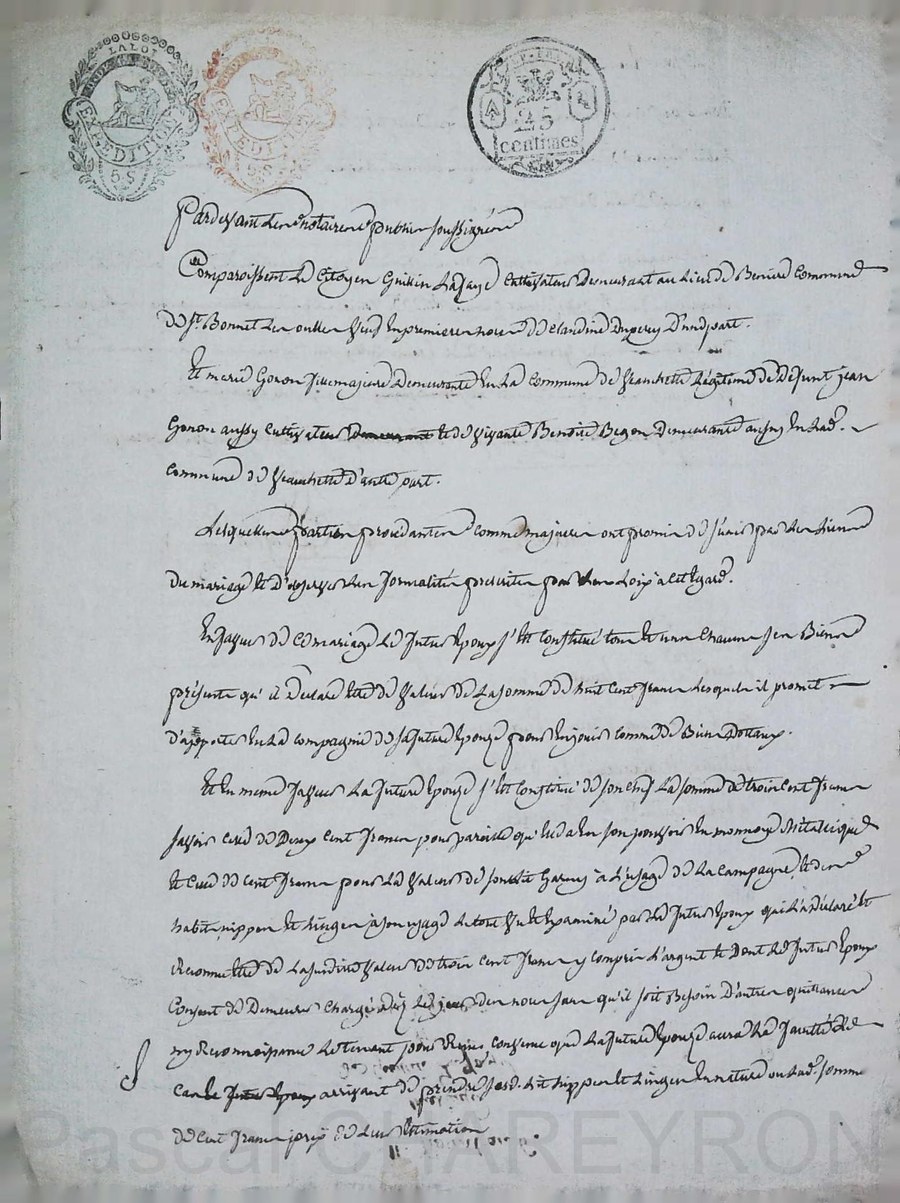 LA LOI
EXPEDITION
5 S
EXPEDITION
5 S
REP. FRA.
25
centimes
Pardevant Les notaires publics soussignés
Comparoissent Le Citoyen Lafaye Cultivateur Demeurant au Lieu de Commune
de St Bonnet Les oulles veuf en premieres noces de Claudine Dupuy D'une part.
Et marie Gonon fille majeure Demeurante En La Commune de Veauchette Légitime de Défunt jean
Gonon aussy Cultivateur Demeurant et de vivante Benoite Begon Demeurante aussy En Lad.
Commune de Veauchette D'autre part.
Lesquelles parties procedantes Comme majeures ont promis de s'unir par Les Liens
Du mariage et D'observer Les formalités prescrites par Les Loix a cet Egard.
En faveur de Ce mariage Le futur Epoux s'est Constitué tous et uns Chacuns ses Biens
présents qu'il a Déclaré être de valeur de La somme de huit Cent francs Lesquels il promet
D'apporter En La compagnie de sa future Epouze pour En jouir Comme de Biens Dotaux.
Et En meme faveur La future Epouze s'est Constitué de son chef La somme de trois Cent francs
savoir Celle de Deux Cent francs pour pareille qu'elle a En son pouvoir En monnoye Métallique
et Celle de Cent francs pour La valeur de son Lit Garny à L'usage de La Campagne, et de ses
habits nippes et Linges à son usage Le tout vu et Examiné par Le futur Epoux qui L'a déclaré et
Reconnu être de La susdite valeur de trois Cent francs y compris L'argent et Dont Le futur Epoux
Consent de Demeurer Chargé Le jour des noces sans qu'il soit Besoin D'autre quittance
ny Reconnoissance Le tenant pour Reçu convenu que La future Epouze aura La faculté Le
Cas Le futur Epoux arrivant de prendre sesd. Lit nippes et Linges En nature ou Lad. somme
de Cent francs prix de Leur Estimation
Pascal CHAREYRON